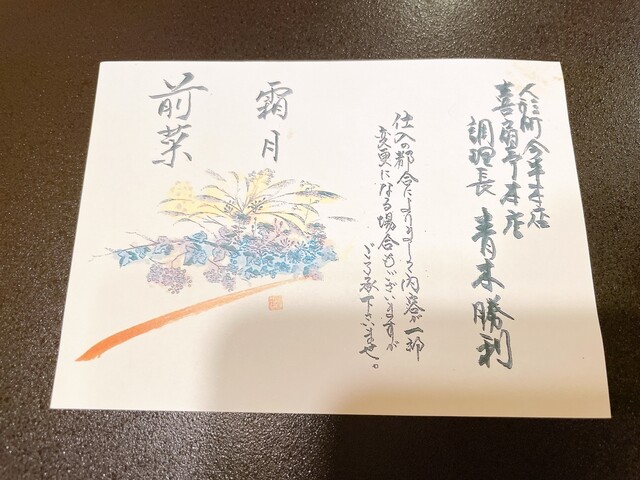 人形町今半本店
喜扇亭本店
調理長 青木勝利
仕入の都合によりまして内容が一部
変更になる場合もございますが
ご了承下さいませ。
霜月
前菜